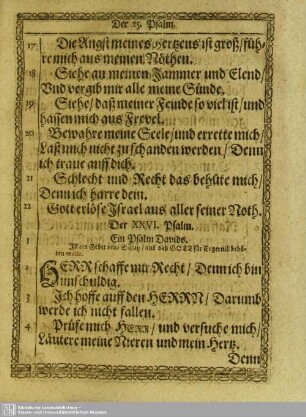 Der 25. Psalm.
17 Die Angst meines Hertzens ist groß/ füh-
re mich aus meinen Nöthen.
18 Siehe an meinen Jammer und Elend/
Und vergib mir alle meine Sünde.
19 Siehe/ daß meiner Feinde so viel ist/ und
hassen mich aus Frevel.
20 Bewahre meine Seele/ und errette mich/
Laß mich nicht zu schanden werden/ Denn
ich traue auff dich.
21 Schlecht und Recht das behüte mich/
Denn ich harre dein.
22 Gott erlöse Israel aus aller seiner Noth.
Der XXVI. Psalm.
1 Ein Psalm Davids.
Ist ein Gebet umb Schutz/ und daß GOTT für
2 HERR schaffe mir Recht/ Denn ich bin
unschuldig.
3 Ich hoffe auff den HERRN/ Darumb
werde ich nicht fallen.
4 Prüfe mich HErr/ und versuche mich/
Läutere meine Nieren und mein Hertz.
Denn